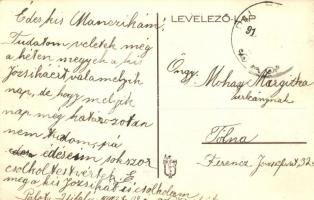 Édes kis Mancrikám!
Tudatom veletek még
a héten megyek a kis
Józsikáért valamelyik
nap, de hogy melyik
nap még határozotan
nem tudom, pá
édéseim sokszor
csolholtestvértek E.
még a kis Józsikát is csolholom
LEVELEZŐ-LAP
91
Öngy. Mohay Margitka
urleánynak
Tolna
Ferencz József ut 32.